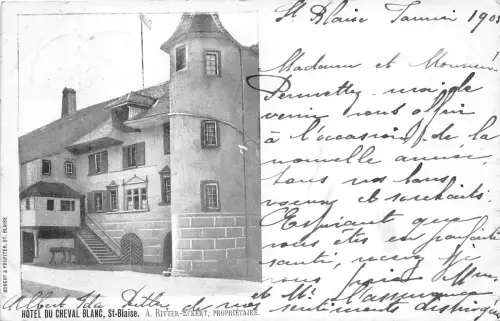 St Blaise Janvier 190
Madame et Monsieur
Permettez-moi de
venir vous offrir
à l'occasion de la
nouvelle année,
tous vos bons
voeux et souhaits.
Espérant que
vous êtes en parfaite
santé, recevez
vous prier Mme
et Mr. l'assurance
de mes sentiments distingués
Albert Ida Ritter
HOTEL DU CHEVAL BLANC, St-Blaise. A. RITTER-ECKERT, PROPRIÉTAIRE.
ROBERT & PROFETER, ST. BLAISE